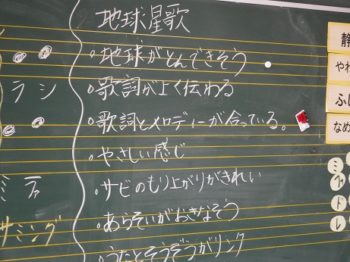 地球星歌
・地球がとんできそう
・歌詞がよく伝わる
・歌詞とメロディーが合っている。
・やさしい感じ
・サビのもり上がりがきれい
・あらそいがおきなそう
・うたとそうぞうがリンク
ラシ
ミ
サミング
静
やれ
ふし
なめ
ミ
ド
レ